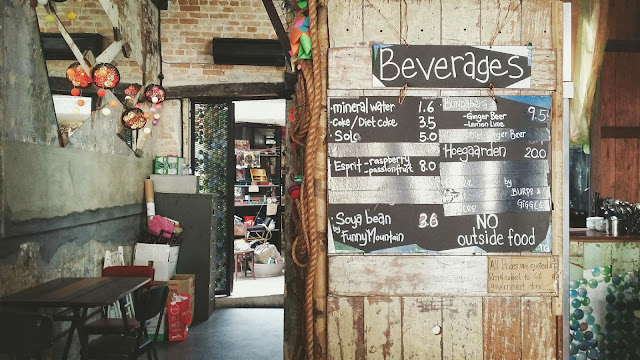 Beverages
mineral water 1.6
Coke/Diet coke 3.5
Sols 5.0
Esprit - raspberry
- passionfruit 8.0
Soya bean
by Funny Mountain
BUNDABERG
- Ginger Beer 9.5
- Lemon Lime
Ginger Beer
Hoegaarden 20.0
by BURPS &
GIGGLES
NO
outside food
All prices are
government